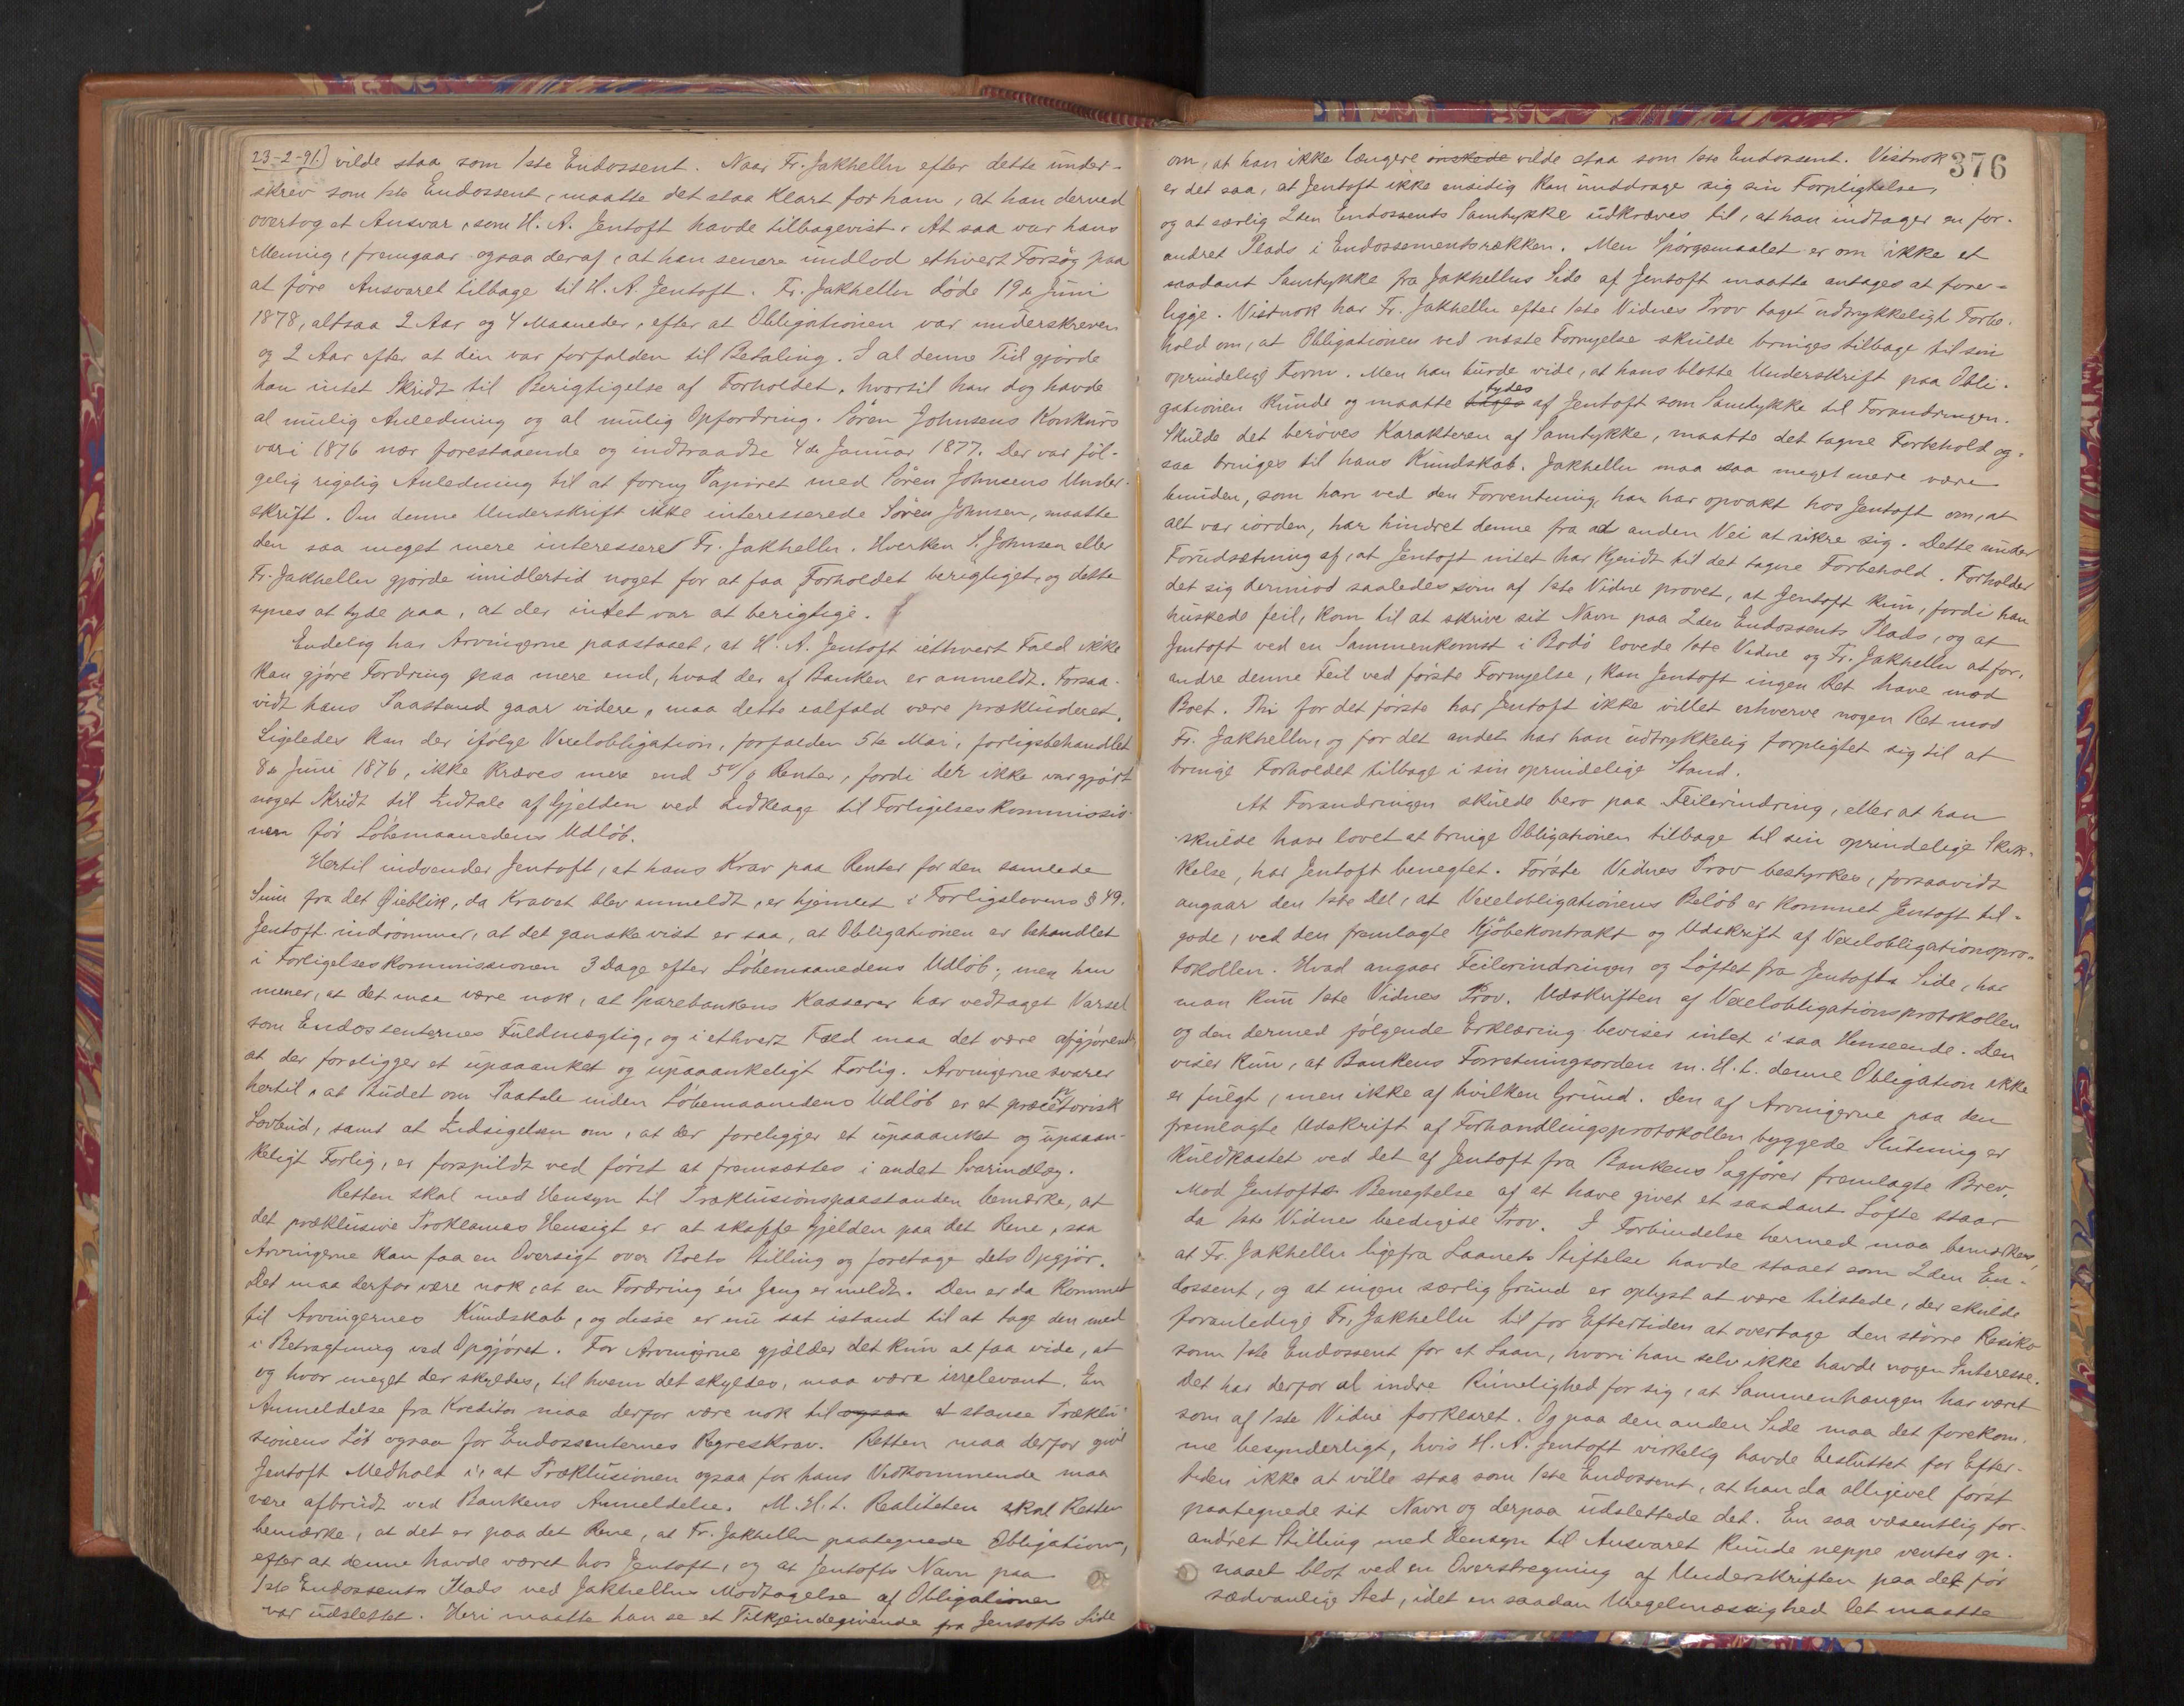 23-2-91.) vilde staa som 1ste Endossent. Naar Fr. Jakhelln efter dette under-
skrev som 1ste Endossent, maatte det staa klart for ham, at han derved
overtog et Ansvar, som H. A. Jentoft havde tilbagevist. At saa var hans
Mening, fremgaar ogsaa deraf, at han senere undlod ethvert Forsøg paa
at føre Ansvaret tilbage til H. A. Jentoft. Fr. Jakhelln døde 19de Juni
1878, altsaa 2 Aar og 4 Maaneder, efter at Obligationen var underskreven
og 2 Aar efter at den var forfalden til Betaling. I al denne Tid gjorde
han intet Skridt til Berigtigelse af Forholdet, hvortil han dog havde
al mulig Anledning og al mulig Opfordring. Søren Johnsens Konkurs
var i 1876 nær forestaaende og indtraadte 4de Januar 1877. Der var føl-
gelig rigelig Anledning til at forny Papiret med Søren Johnsens Under-
skrift. Om denne Underskrift ikke interesserede Søren Johnsen, maatte
den saa meget mere interessere Fr. Jakhelln. Hverken S. Johnsen eller
Fr. Jakhelln gjorde imidlertid noget for at faa Forholdet berigtiget, og dette
synes at tyde paa, at der intet var at berigtige.
Endelig har Arvingerne paastaaet, at H. A. Jentoft iethvert Fald ikke
kan gjøre Fordring paa mere end, hvad der af Banken er anmeldt. Forsaa-
vidt hans Paastand gaar videre, maa dette ialfald være prækluderet.
Ligeledes kan der ifølge Vexelobligation, forfalden 5te Mai, forligsbehandlet
8de Juni 1876, ikke kræves mere end 5% Renter, fordi der ikke var gjort
noget Skridt til Indtale af Gjelden ved Indklage til Forligelseskommissio-
nen før Løbemaanedens Udløb.
Hertil indvender Jentoft, at hans Krav paa Renter for den samlede
Sum fra det Øieblik, da Kravet blev anmeldt, er hjemlet i Forligslovens § 49.
Jentoft indrømmer, at det ganske vist er saa, at Obligationen er behandlet
i Forligelseskommissionen 3 Dage efter Løbemaanedens Udløb; men han
mener, at det maa være nok, at Sparebankens Kasserer har vedtaget Varsel
som Endossenternes Fuldmægtig, og i ethvert Fald maa det være afgjørende
at der foreligger et upaaanket og upaaankeligt Forlig. Arvingerne svarer
hertil, at Budet om Paatale inden Løbemaanedens Udløb er et præceptorisk
Lovbud, samt at Indsigelsen om, at der foreligger et upaaanket og upaaan-
keligt Forlig, er forspildt ved først at fremsættes i andet Svarindlæg.
Retten skal med Hensyn til Præklusionspaastanden bemærke, at
det præklusive Proklamas Hensigt er at skaffe Gjelden paa det Rene, saa
Arvingerne kan faa en Oversigt over Boets Stilling og foretage dets Opgjør.
Det maa derfor være nok, at en Fordring én Gang er meldt. Den er da kommet
til Arvingernes Kundskab, og disse er nu sat istand til at tage den med
i Betragtning ved Opgjøret. For Arvingerne gjælder det kun at faa vide, at
og hvor meget der skyldes, til hvem det skyldes, maa være irrelevant. En
Anmeldelse fra Kreditor maa derfor være nok til ogsaa at standse Præklu-
sionens Løb ogsaa for Endossenternes Regreskrav. Retten maa derfor give
Jentoft Medhold i, at Præklusionen ogsaa for hans Vedkommende maa
være afbrudt ved Bankens Anmeldelse. M. H. t. Realiteten skal Retten
bemærke, at det er paa det Rene, at Fr. Jakhelln paategnede Obligationen,
efter at denne havde været hos Jentoft, og at Jentofts Navn paa
1ste Endossents Plads ved Jakhellns Modtagelse af Obligationen
var udslettet. Heri maatte han se et Tilkjendegivende fra Jentofts Side
376
om, at han ikke længere ønskede vilde staa som 1ste Endossent. Vistnok
er det saa, at Jentoft ikke ensidig kan unddrage sig sin Forpligtelse,
og at særlig 2den Endossents Samtykke udkræves til, at han indtager en for-
andret Plads i Endossementsrækken. Men Spørgsmaalet er om ikke et
saadant Samtykke fra Jakhellns Side af Jentoft maatte antages at fore-
ligge. Vistnok har Fr. Jakhelln efter 1ste Vidnes Prov taget udtrykkeligt Forbe-
hold om, at Obligationen ved næste Fornyelse skulde bringes tilbage til sin
oprindelige Form. Men han burde vide, at hans blotte Underskrift paa Obli-
gationen kunde og maatte tages tydes af Jentoft som Samtykke til Forandringen.
Skulde det berøves Karakteren af Samtykke, maatte det tagne Forbehold og-
saa bringes til hans Kundskab. Jakhelln maa saa meget mere være
bunden, som han ved den Forventning, han har opvakt hos Jentoft om, at
alt var iorden, har hindret denne fra ad anden Vei at sikre sig. Dette under
Forudsætning af, at Jentoft intet har kjendt til det tagne Forbehold. Forholder
det sig derimod saaledes som af 1ste Vidne provet, at Jentoft kun, fordi han
huskede feil, kom til at skrive sit Navn paa 2den Endossents Plads, og at
Jentoft ved en Sammenkomst i Bodø lovede 1ste Vidne og Fr. Jakhelln at for-
andre denne Feil ved første Fornyelse, kan Jentoft ingen Ret have mod
Boet. Thi for det første har Jentoft ikke villet erhverve nogen Ret mod
Fr. Jakhelln, og for det andet har han udtrykkelig forpligtet sig til at
bringe Forholdet tilbage i sin oprindelige Stand.
At Forandringen skulde bero paa Feilerindring, eller at han
skulde have lovet at bringe Obligationen tilbage til sin oprindelige Skik-
kelse, har Jentoft benegtet. Første Vidnes Prov bestyrkes, forsaavidt
angaar den 1ste Del, at Vexelobligationens Beløb er kommet Jentoft til-
gode, ved den fremlagte Kjøbekontrakt og Udskrift af Vexelobligationspro-
tokollen. Hvad angaar Feilerindringen og Løftet fra Jentofts Side, har
man kun 1ste Vidnes Prov. Udskriften af Vexelobligationsprotokollen
og den dermed følgende Erklæring beviser intet i saa Henseende. Den
viser kun, at Bankens Forretningsorden m. H. t. denne Obligation ikke
er fulgt, men ikke af hvilken Grund. Den af Arvingerne paa den
fremlagte Udskrift af Forhandlingsprotokollen byggede Slutning er
kuldkastet ved det af Jentoft fra Bankens Sagfører fremlagte Brev.
Mod Jentofts Benegtelse af at have givet et saadant Løfte staar
da 1ste Vidnes beedigede Prov. I Forbindelse hermed maa bemærkes,
at Fr. Jakhelln ligefra Laanets Stiftelse havde staaet som 2den En-
dossent, og at ingen særlig Grund er oplyst at være tilstede, der skulde
foranledige Fr. Jakhelln til for Eftertiden at overtage den større Resiko
som 1ste Endossent for et Laan, hvori han selv ikke havde nogen Interesse.
Det har derfor al indre Rimelighed for sig, at Sammenhængen har været
som af 1ste Vidne forklaret. Og paa den anden Side maa det forekom-
me besynderligt, hvis H. A. Jentoft virkelig havde besluttet for Efter-
tiden ikke at ville staa som 1ste Endossent, at han da alligevel først
paategnede sit Navn og derpaa udslettede det. En saa væsentlig for-
andret Stilling med Hensyn til Ansvaret kunde neppe ventes op-
naaet blot ved en Overstregning af Underskriften paa det før
sædvanlige Sted, idet en saadan Uregelmæssighed let maatte